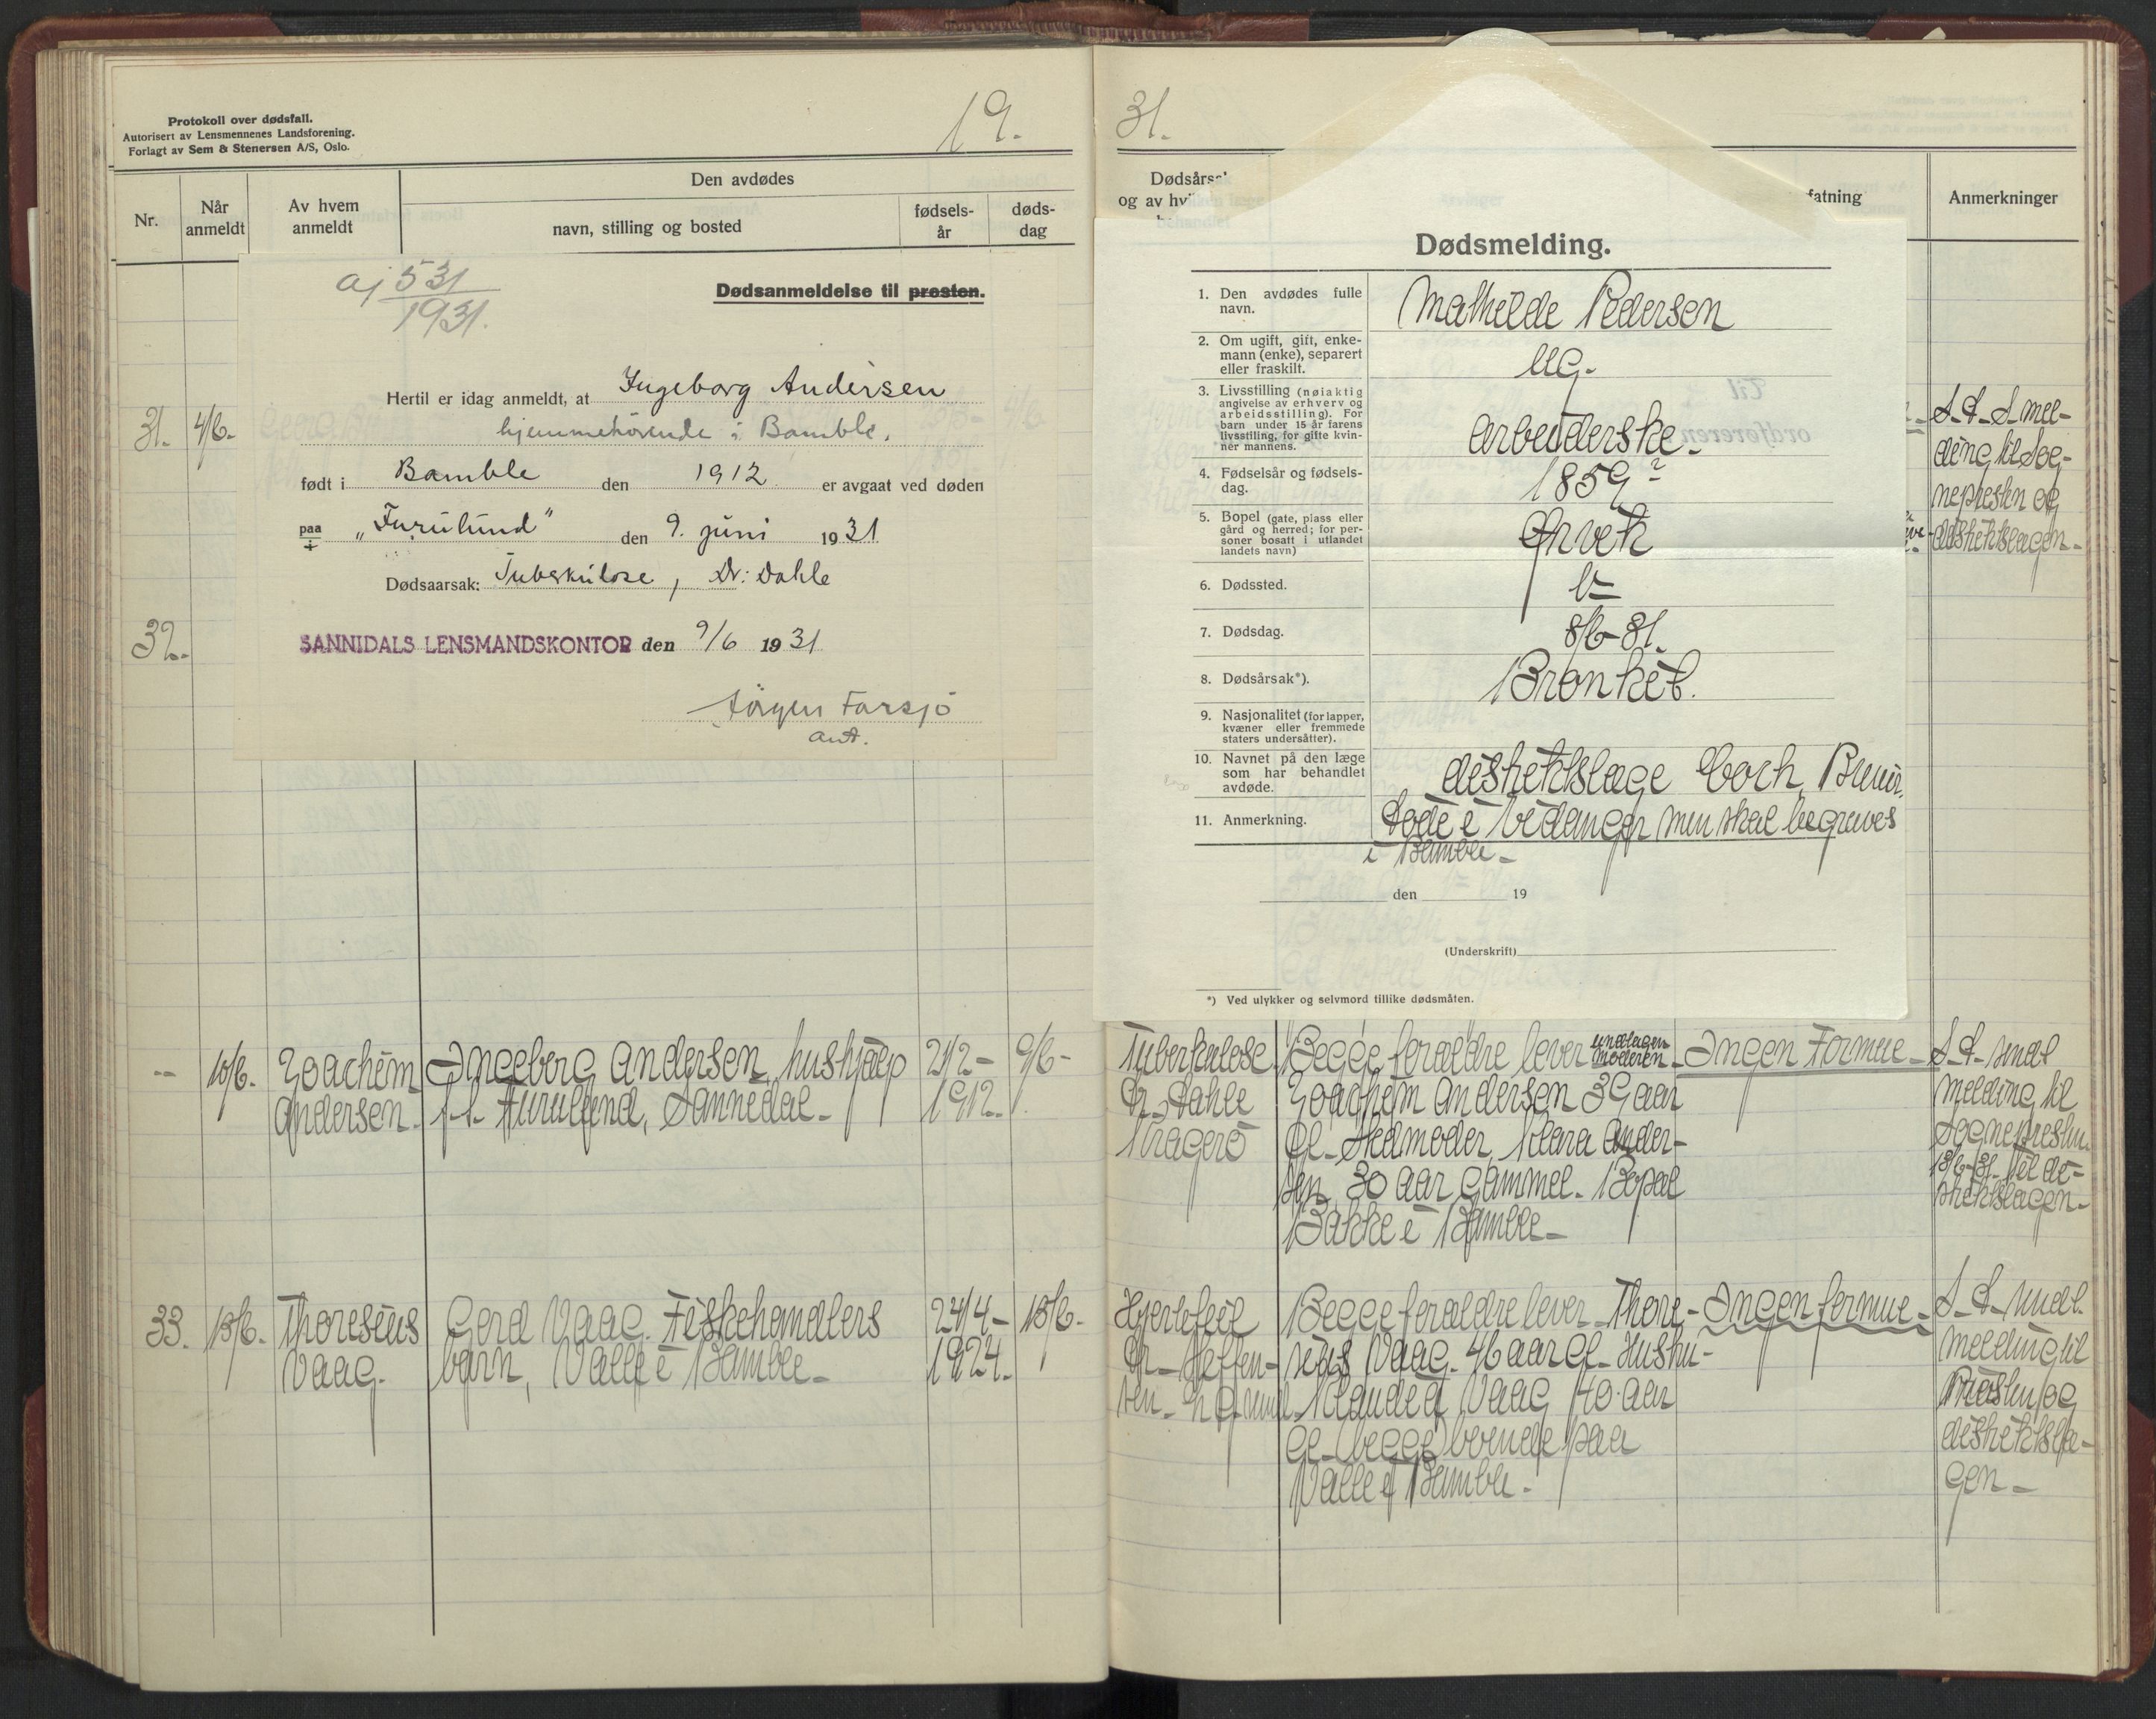 Protokoll over dødsfall.
Autorisert av Lensmennenes Landsforening.
Forlagt av Sem & Stenersen A/S, Oslo.
19.
Nr.
Når anmeldt
Av hvem anmeldt
Den avdødes
navn, stilling og bosted
fødsels-år
døds-dag
31. 4/6.
32.
Aj 531
1931.
Dødsanmeldelse til presten.
Hertil er idag anmeldt, at Ingeborg Andersen
hjemmehörende i Bamble.
født i Bamble den 1912 er avgaat ved døden
paa
i
"Furulund" den 9. juni 1931
Dødsaarsak: Tuberkulose, Dr: Dahle
SANNIDALS LENSMANDSKONTOR den 9/6 1931
Jörgen Farsjö
ant.
-- 10/6. Joachim Ingeborg Andersen, hushjælp 21/2- 9/6-
Andersen. p.t. Furulund, Sannidal- 1912.
33. 13/6. Thoresius Gerd Vaag. Fiskehandlers 24/4- 13/6-
Vaag. barn, Valle i Bamble- 1924.
31.
Dødsårsak
og av hvi
fatning
Anmerkninger
S.d.S. mel-
ding til Sog-
nepresten og
distriktslægen-
Dødsmelding.
1. Den avdødes fulle navn. Mathilde Pedersen
2. Om ugift, gift, enke-
mann (enke), separert
eller fraskilt. Ug.
3. Livsstilling (nøiaktig
angivelse av erhverv og
arbeidsstilling). For
barn under 15 år farens
livsstilling, for gifte kvin-
ner mannens. Arbeiderske-
4. Fødselsår og fødsels-
dag. 1859?
5. Bopel (gate, plass eller
gård og herred; for per-
soner bosatt i utlandet
landets navn) Ørvik
6. Dødssted.
7. Dødsdag. 8/6-31.
8. Dødsårsak*). Bronkit.
9. Nasjonalitet (for lapper,
kvæner eller fremmede
staters undersåtter).
10. Navnet på den læge
som har behandlet
avdøde. distriktslæge Coch, Brevik.
11. Anmerkning. Døde i Eidanger men skal begraves
i Bamble-
den 19
(Underskrift)
*) Ved ulykker og selvmord tillike dødsmåten.
Tuberkulose. Begge forældre lever undtagen moderen- Ingen Formue- S.d. sendt
Dr. Dahle Joachim Andersen 39 aar melding til
Kragerö gl. Stedmoder, Klara Ander- Sognepresten
sen 30 aar gammel. Bopæl 13/6-31. Til di-
Bakke i Bamble- striktslægen-
Hjertefeil Begge forældre lever- Thore- Ingen formue- S.d. sendt
Dr. Steffen- sius Vaag. 46 aar gl. Hustru- melding til
sen. Vaag 40 aar Presten og
gl. (begge) boende paa distriktslæ-
Valle i Bamble. gen-